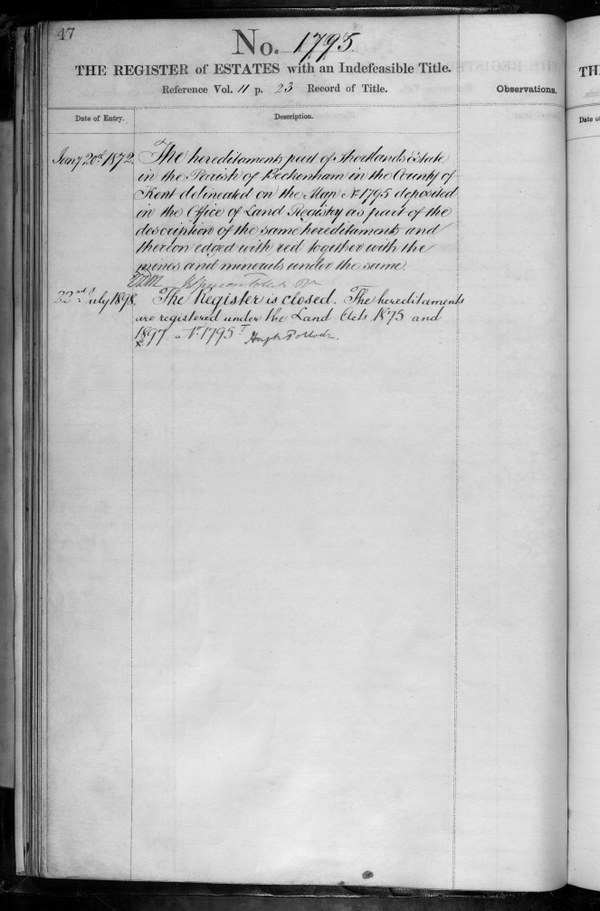 47
No. 1795
THE REGISTER of ESTATES with an Indefeasible Title.
Reference Vol. 11 p. 23 Record of Title.
Observations.
Date of Entry.
Description.
Jany 20th 1872.
The hereditaments part of Shortlands Estate
in the Parish of Beckenham in the County of
Kent delineated on the Map No 1795 deposited
in the Office of Land Registry as part of the
description of the same hereditaments and
thereon edged with red together with the
mines and minerals under the same
22nd July 1898.
The Register is closed. The hereditaments
are registered under the Land Acts 1875 and
1897 No 1795 T Hugh Pollock.
TH
Date of